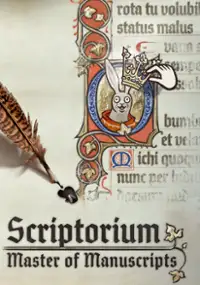 rota tu volubil
status malus
bum
et vela
ichi quoque
nunc per
Scriptorium
Master of Manuscripts